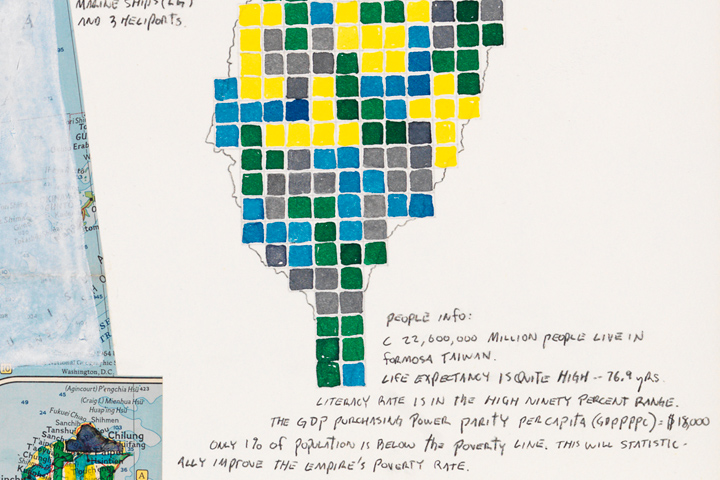 MARINE SHIPS
AND 3 HELIPORTS.
PEOPLE INFO:
C 22,600,000 MILLION PEOPLE LIVE IN
FORMOSA TAIWAN.
LIFE EXPECTANCY IS QUITE HIGH -- 76.9 yrs.
LITERACY RATE IS IN THE HIGH NINETY PERCENT RANGE.
THE GDP PURCHASING POWER PARITY PER CAPITA (GDPPPPC) = $18,000
ONLY 1% OF POPULATION IS BELOW THE POVERTY LINE. THIS WILL STATISTIC-
ALLY IMPROVE THE EMPIRE'S POVERTY RATE.
Washington, D.C.
(Agincourt) P'engchia Hsü 423
(Craig I.) Mienhua Hsü
Huap'ing Hsü
Fukuei Chiao
Sanchih Shihmen
Tanshui
Chilung
Juifang
A